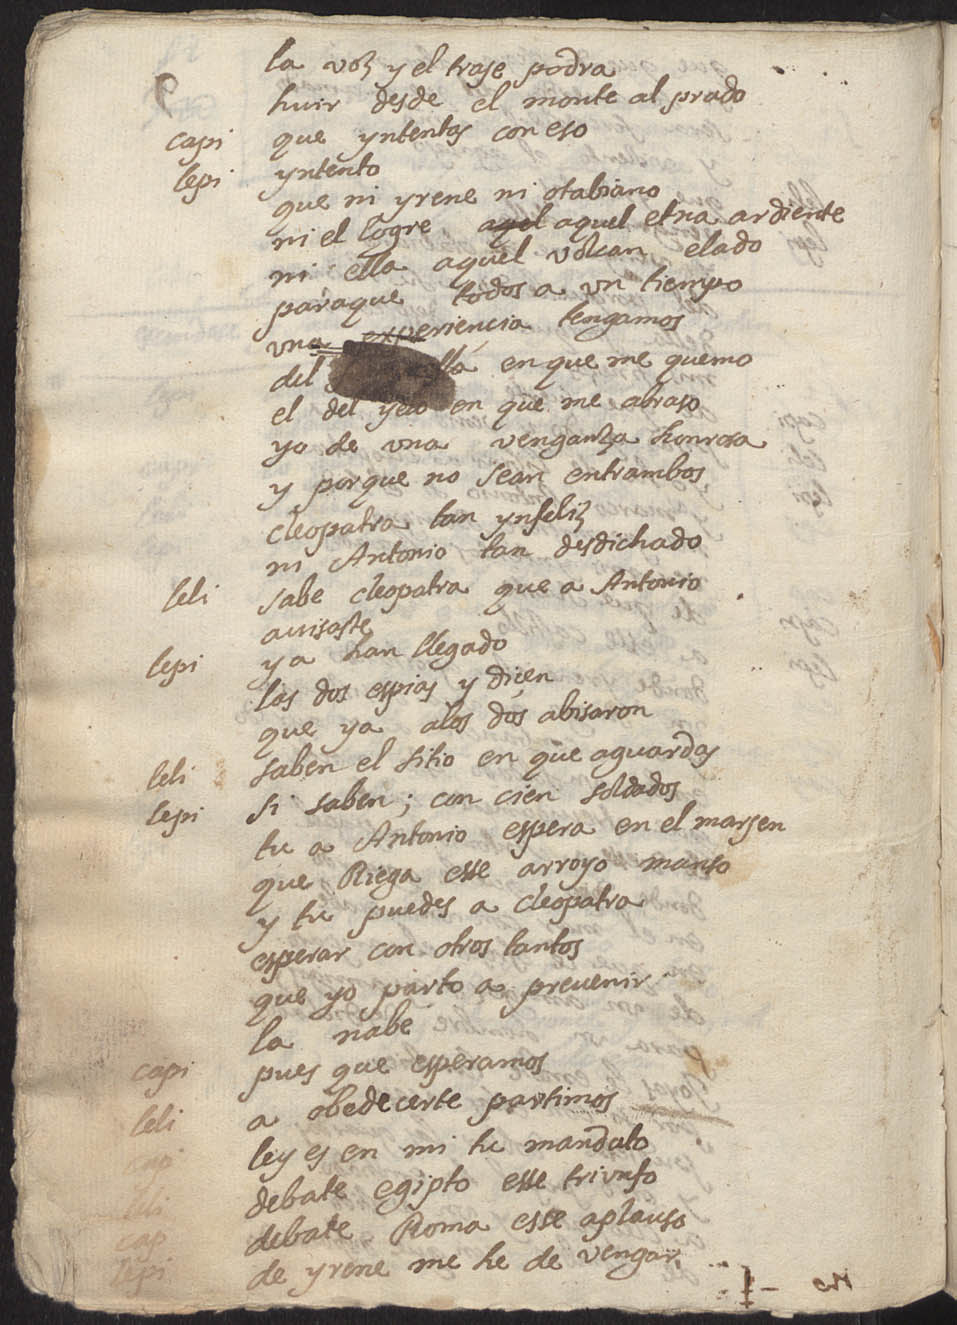 la voz y el traje podra
huir desde el monte al prado
capi que yntentas con eso
lepi yntento
que ni yrene ni otabiano
ni el logre aquel aquel etna ardiente
ni ella aquel volcan elado
paraque todos a vn tiempo
vna experiencia tengamos
del en que me quemo
el del yelo en que me abraso
yo de vna venganza honrosa
y porque no sean entrambos
cleopatra tan ynfeliz
ni Antonio tan desdichado
leli sabe cleopatra que a Antonio
auisaste
lepi ya han llegado
las dos espias y dicen
que ya a los dos abisaron
leli saben el sitio en que aguardas
lepi si saben; con cien soldados
tu a Antonio espera en el marjen
que Riega esse arroyo manso
y tu puedes a cleopatra
esperar con otros tantos
que yo parto a preuenir
la nabe
capi pues que esperamos
leli a obedecerte partimos
cap ley es en mi tu mandato
leli debate egipto esse triunfo
cap debate Roma esse aplauso
lepi de yrene me he de vengar.